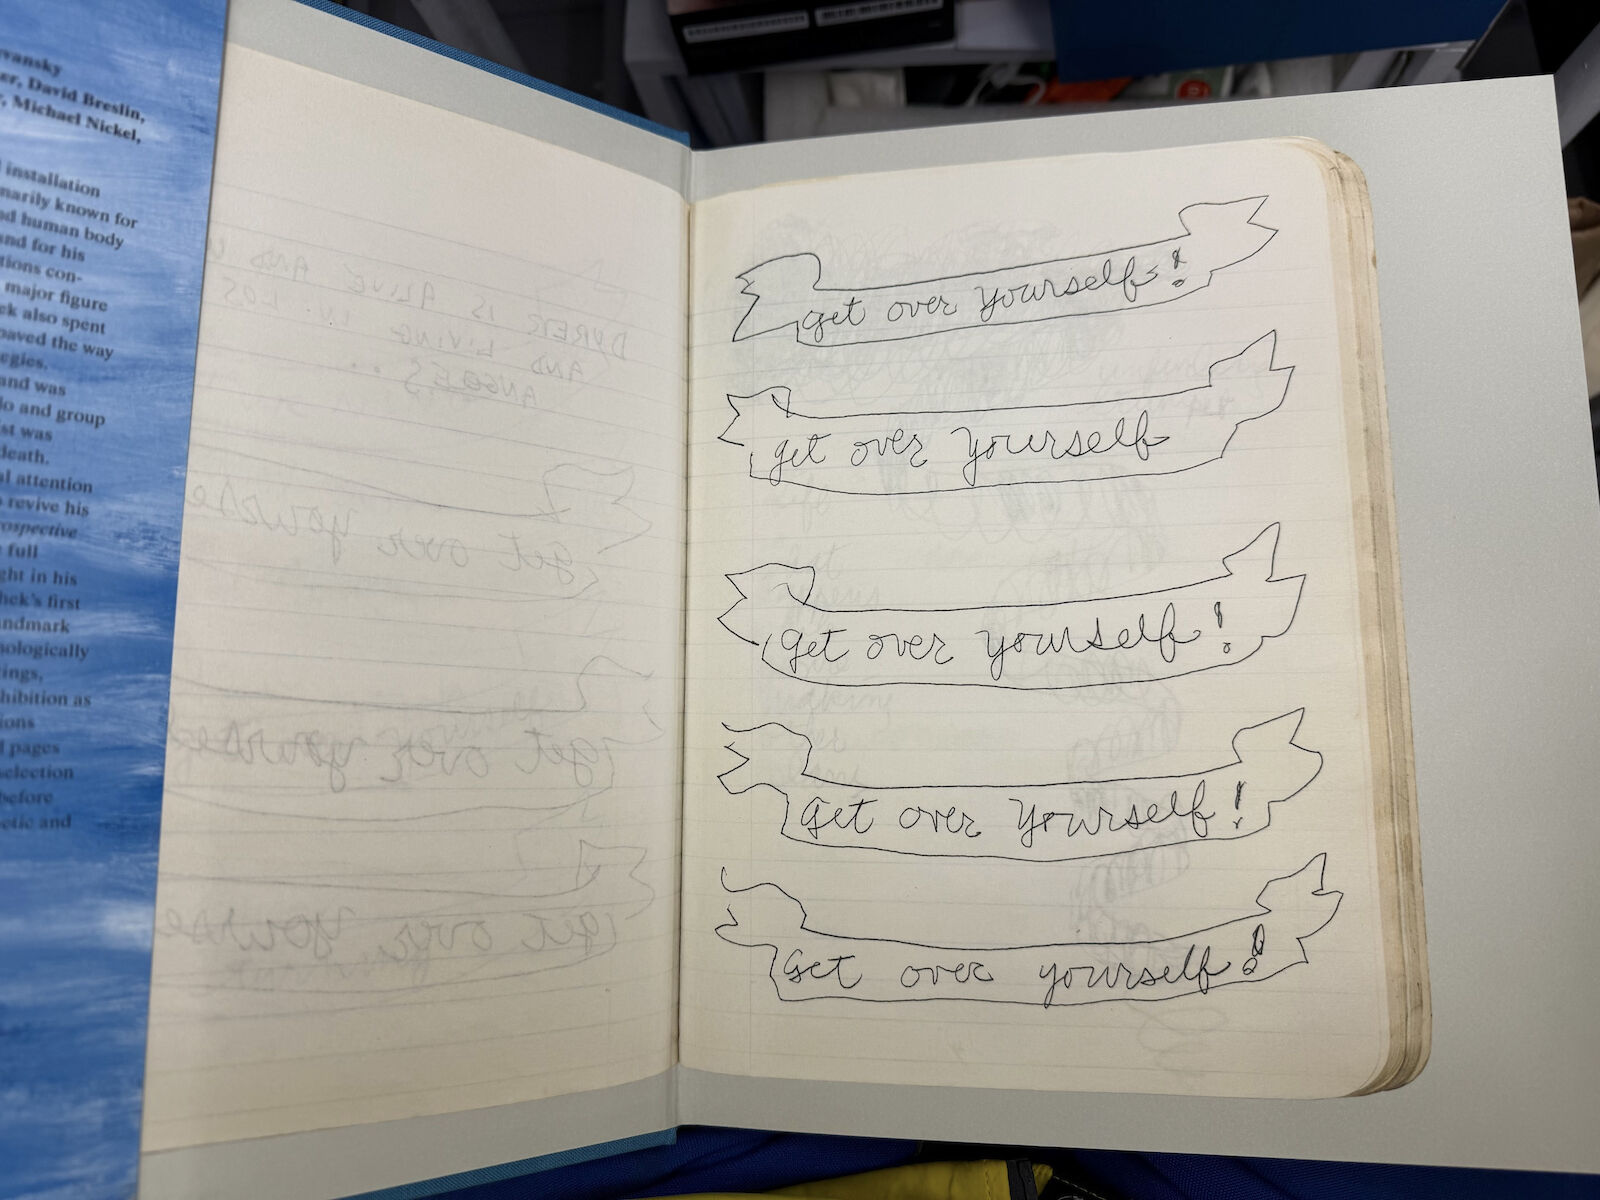 vansky
er, David Breslin,
, Michael Nickel,
installation
marily known for
nd human body
and for his
tions con-
major figure
ck also spent
paved the way
egies.
and was
lo and group
st was
death.
al attention
revive his
ospective
full
ght in his
hek's first
andmark
nologically
tings,
hibition as
ions
pages
selection
before
etic and
DÜRER IS ALIVE AND
AND LIVING IN LOS
ANGELES...
get over yourse
get over yourse
get over yourse
get over yourself!
get over yourself
get over yourself!
get over yourself!
get over yourself!